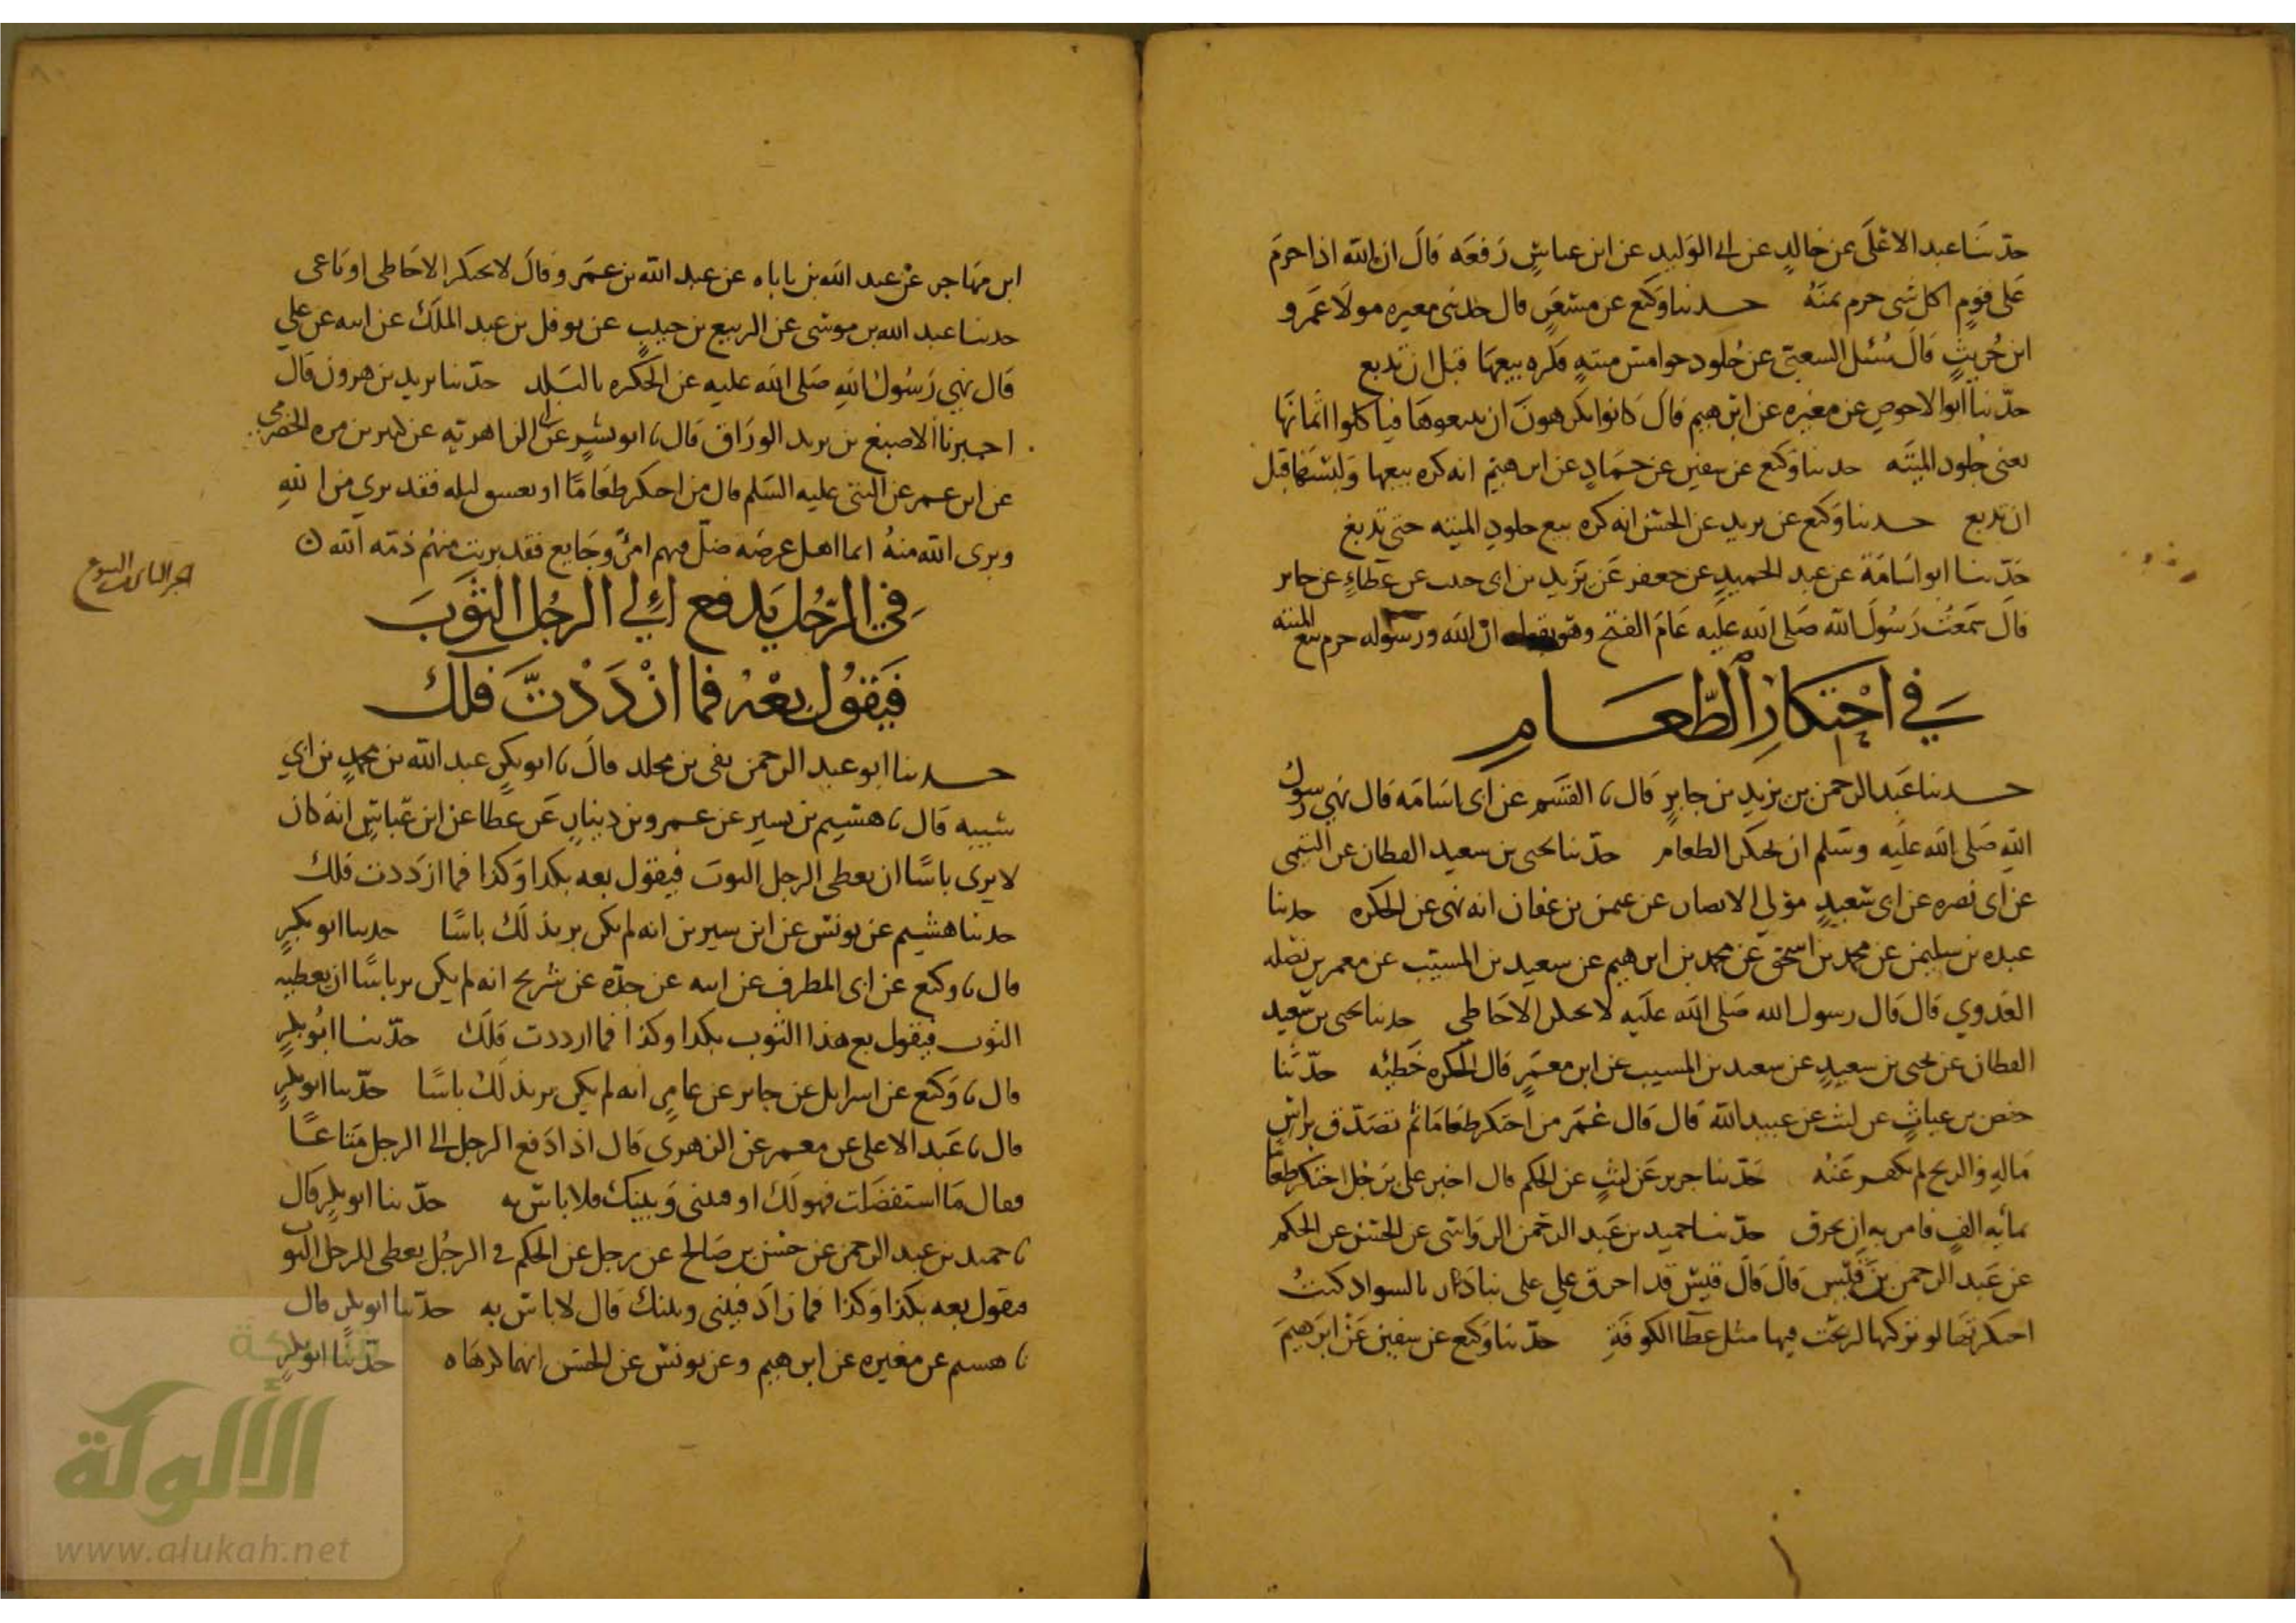 حدثنا عبد الاعلى عن خالد عن ابي الوليد عن ابن عباس رفعه قال ان الله اذا حرم
على قوم اكل شي حرم ثمنه حدثنا وكيع عن مسعر قال حدثني مغيره مولا عمرو
ابن حريث قال سئل الشعبي عن جلود جواميس ميته فكره بيعها قبل ان تدبغ
حدثنا ابو الاحوص عن مغيره عن ابرهيم قال كانوا يكرهون ان يبيعوها فياكلوا اثمانها
يعنى جلود الميته حدثنا وكيع عن سفين عن حماد عن ابرهيم انه كره بيعها ولبسها قبل
ان تدبغ حدثنا وكيع عن يزيد عن الحسن انه كره بيع جلود الميته حتى تدبغ
حدثنا ابو اسامة عن عبد الحميد عن جعفر عن يزيد بن ابى حبيب عن عطاء عن جابر
قال سمعت رسول الله صلى الله عليه عام الفتح وهو يقول ان الله ورسوله حرم بيع الميته
في احتكار الطعام
حدثنا عبد الرحمن بن يزيد بن جابر قال نا القسم عن ابى اسامه قال نهى رسول
الله صلى الله عليه وسلم ان يحتكر الطعام حدثنا يحيى بن سعيد القطان عن التيمى
عن ابى نصره عن ابى سعيد مولي الانصار عن عثمن بن عفان انه نهى عن الحكره حدثنا
عبده بن سليمن عن محمد بن اسحق عن محمد بن ابرهيم عن سعيد بن المسيب عن معمر بن نضله
العدوي قال قال رسول الله صلى الله عليه لا يحتكر الا خاطي حدثنا يحيى بن سعيد
القطان عن يحيى بن سعيد عن سعيد بن المسيب عن ابن معمر قال الحكره خطيئه حدثنا
حفص بن غياث عن ليث عن عبيد الله قال قال عمر من احتكر طعاما ثم تصدق براس
ماله والربح لم يكفر عنه حدثنا جرير عن ليث عن الحكم قال اخبر على برجل احتكر طعاما
بمائه الف فامر به ان يحرق حدثنا حميد بن عبد الرحمن الرواسى عن الحسن عن الحكم
عن عبد الرحمن بن قيس قال قال قيس قد احرق علي على بيادر بالسواد كنت
احتكرتها لو تركها لربحت فيها مثل عطا الكوفة حدثنا وكيع عن سفين عن ابرهيم
ابن مهاجر عن عبد الله بن باباه عن عبد الله بن عمر وقال لا يحتكر الا خاطى او باغى
حدثنا عبد الله بن موسى عن الربيع بن حبيب عن نوفل بن عبد الملك عن ابيه عن علي
قال نهي رسول الله صلى الله عليه عن الحكره بالبلد حدثنا يزيد بن هرون قال
اخبرنا الاصبغ بن يزيد الوراق قال نا ابو بشر عن ابى الزاهريه عن كثير بن مره الحضرمي
عن ابن عمر عن النبى عليه السلم قال من احتكر طعاما اربعين ليله فقد بري من الله
وبرى الله منه ايما اهل عرصه ظل فيهم امرؤ جايع فقد بريت منهم ذمه الله
في الرجل يدفع الي الرجل الثوب
فيقول بعه فما ازددت فلك
حدثنا ابو عبد الرحمن بقى بن مخلد قال نا ابو بكر عبد الله بن محمد بن ابي
شيبه قال نا هشيم بن بشير عن عمرو بن دينار عن عطا عن ابن عباس انه كان
لا يرى باسا ان يعطى الرجل الثوب فيقول بعه بكذا وكذا فما ازددت فلك
حدثنا هشيم عن يونس عن ابن سيرين انه لم يكن ير بذلك باسا حدثنا ابو بكر
قال نا وكيع عن ابى المطرف عن ابيه عن جده عن شريح انه لم يكن ير باسا ان يعطيه
الثوب فيقول بع هذا الثوب بكذا وكذا فما ازددت فلك حدثنا ابو بكر
قال نا وكيع عن اسرايل عن جابر عن عامر انه لم يكن ير بذلك باسا حدثنا ابو بكر
قال نا عبد الاعلى عن معمر عن الزهرى قال اذا دفع الرجل الى الرجل متاعا
فقال ما استفضلت فهو لك او فبينى وبينك فلا باس به حدثنا ابو بكر قال
نا حميد بن عبد الرحمن عن حسن بن صالح عن رجل عن الحكم في الرجل يعطى للرجل الثوب
فيقول بعه بكذا وكذا فما زاد فبينى وبينك قال لا باس به حدثنا ابو بكر قال
نا هشيم عن مغيره عن ابرهيم وعن يونس عن الحسن انهما كرهاه حدثنا ابو بكر
شبكة
الألوكة
www.alukah.net